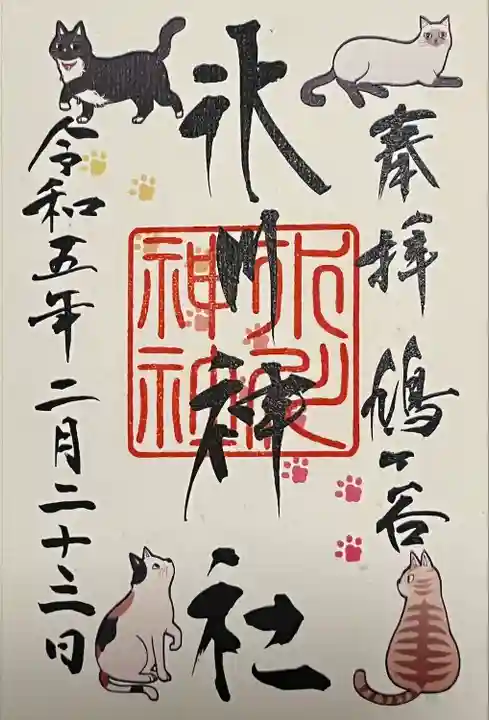 奉拝 鳩ヶ谷
氷川神社
氷川
神社
令和五年二月二十三日